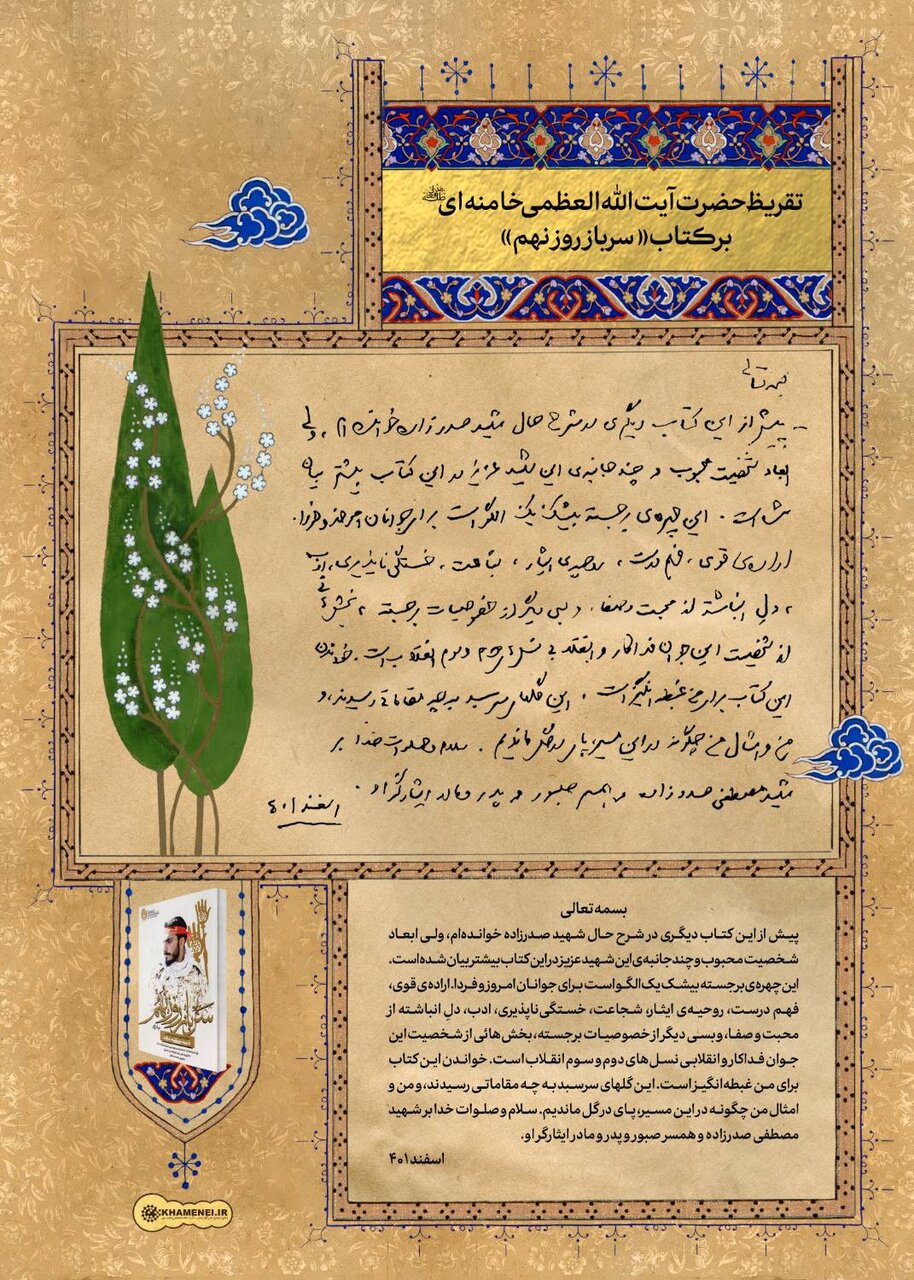 تقریظ حضرت آیت الله العظمی خامنه ای مدظله‌العالی
بر کتاب «سرباز روز نهم»
بسمه تعالی
- پیش از این کتاب دیگری در شرح حال شهید صدرزاده خوانده‌ام، ولی
ابعاد شخصیت محبوب و چند جانبه‌ی این شهید عزیز در این کتاب بیشتر بیان
شده است. این چهره‌ی برجسته بیشک یک الگو است برای جوانان امروز و فردا.
اراده‌ی قوی، فهم درست، روحیه‌ی ایثار، شجاعت، خستگی ناپذیری، ادب
، دل انباشته از محبت و صفا، و بسی دیگر از خصوصیات برجسته، بخش‌هائی
از شخصیت این جوان فداکار و انقلابی نسل‌های دوم و سوم انقلاب است. خواندن
این کتاب برای من غبطه انگیز است. این گلهای سرسبد به چه مقاماتی رسیدند، و
من و امثال من چگونه در این مسیر، پای در گل ماندیم. سلام و صلوات خدا بر
شهید مصطفی صدرزاده و همسر صبور و پدر و مادر ایثارگر او.
اسفند ۴۰۱
بسمه تعالی
پیش از این کتاب دیگری در شرح حال شهید صدرزاده خوانده‌ام، ولی ابعاد
شخصیت محبوب و چند جانبه‌ی این شهید عزیز در این کتاب بیشتر بیان شده است.
این چهره‌ی برجسته بیشک یک الگو است برای جوانان امروز و فردا. اراده‌ی قوی،
فهم درست، روحیه‌ی ایثار، شجاعت، خستگی ناپذیری، ادب، دل انباشته از
محبت و صفا، و بسی دیگر از خصوصیات برجسته، بخش‌هائی از شخصیت این
جوان فداکار و انقلابی نسل‌های دوم و سوم انقلاب است. خواندن این کتاب
برای من غبطه انگیز است. این گلهای سرسبد به چه مقاماتی رسیدند، و من و
امثال من چگونه در این مسیر، پای در گل ماندیم. سلام و صلوات خدا بر شهید
مصطفی صدرزاده و همسر صبور و پدر و مادر ایثارگر او.
اسفند ۴۰۱
سرباز روز نهم
KHAMENEI.IR